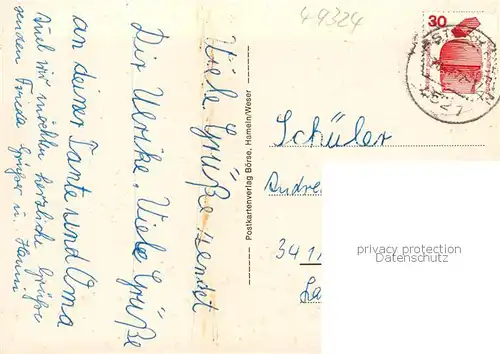 49324
30
4521
Viele Grüße sendet
Dir Ulrike. Viele Grüße
an deiner Tante und Oma
Auch wir möchten herzliche Grüße
senden Frieda Grüßer u. Hanni
Postkartenverlag Börse, Hameln/Weser
Schüler
Andre
341
La
privacy protection
Datenschutz